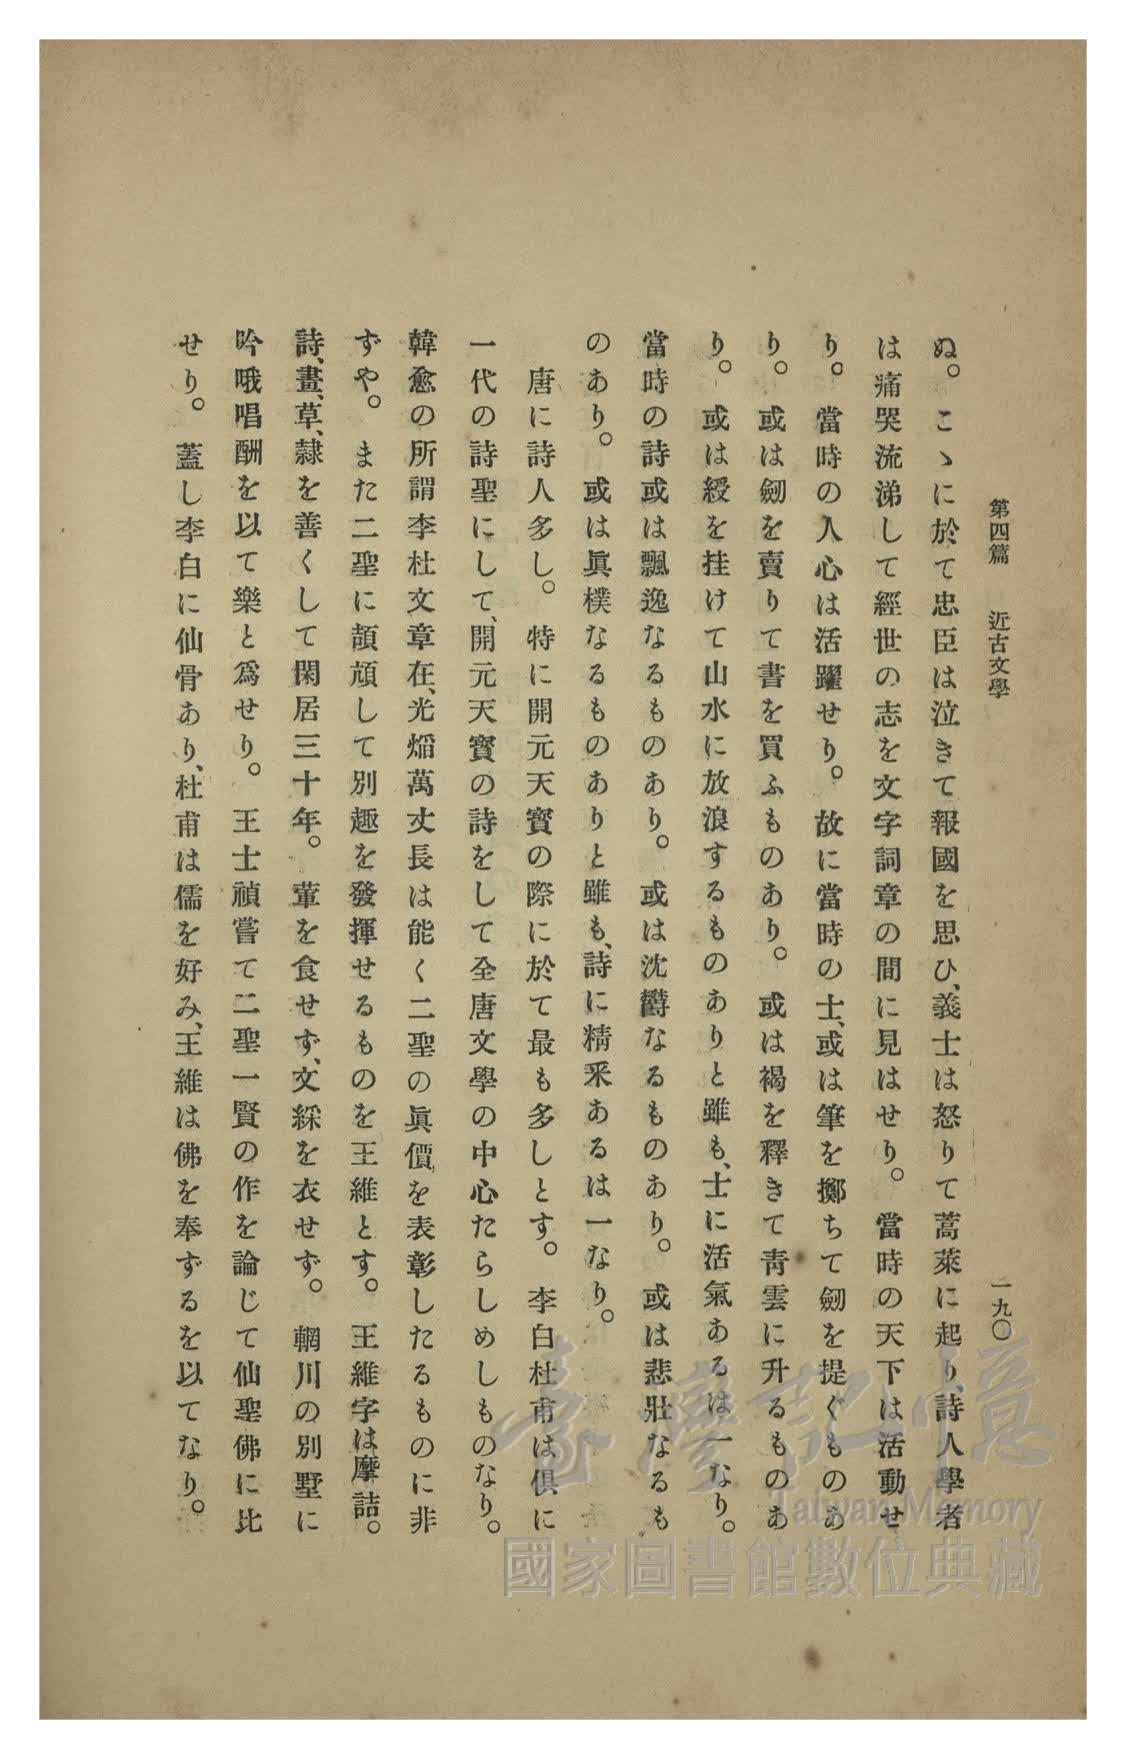 第四篇　近古文學　一九〇
ぬ。こゝに於て忠臣は泣きて報國を思ひ、義士は怒りて蒿萊に起り、詩人學者
は痛哭流涕して經世の志を文字詞章の間に見はせり。當時の天下は活動せ
り。當時の人心は活躍せり。故に當時の士、或は筆を擲ちて劒を提ぐものあ
り。或は劒を賣りて書を買ふものあり。或は褐を釋きて靑雲に升るものあ
り。或は綬を挂けて山水に放浪するものありと雖も、士に活氣あるは一なり。
當時の詩或は飄逸なるものあり。或は沈欝なるものあり。或は悲壯なるも
のあり。或は眞樸なるものありと雖も、詩に精釆あるは一なり。
唐に詩人多し。特に開元天寳の際に於て最も多しとす。李白杜甫は倶に
一代の詩聖にして、開元天寳の詩をして全唐文學の中心たらしめしものなり。
韓愈の所謂李杜文章在、光熖萬丈長は能く二聖の眞價を表彰したるものに非
ずや。また二聖に頡頏して別趣を發揮せるものを王維とす。王維字は摩詰。
詩、畫、草、隷を善くして閑居三十年。葷を食せず、文綵を衣せず。輞川の別墅に
吟哦唱酬を以て樂と爲せり。王士禎嘗て二聖一賢の作を論じて仙聖佛に比
せり。蓋し李白に仙骨あり、杜甫は儒を好み、王維は佛を奉ずるを以てなり。
臺灣記憶
Taiwan Memory
國家圖書館數位典藏